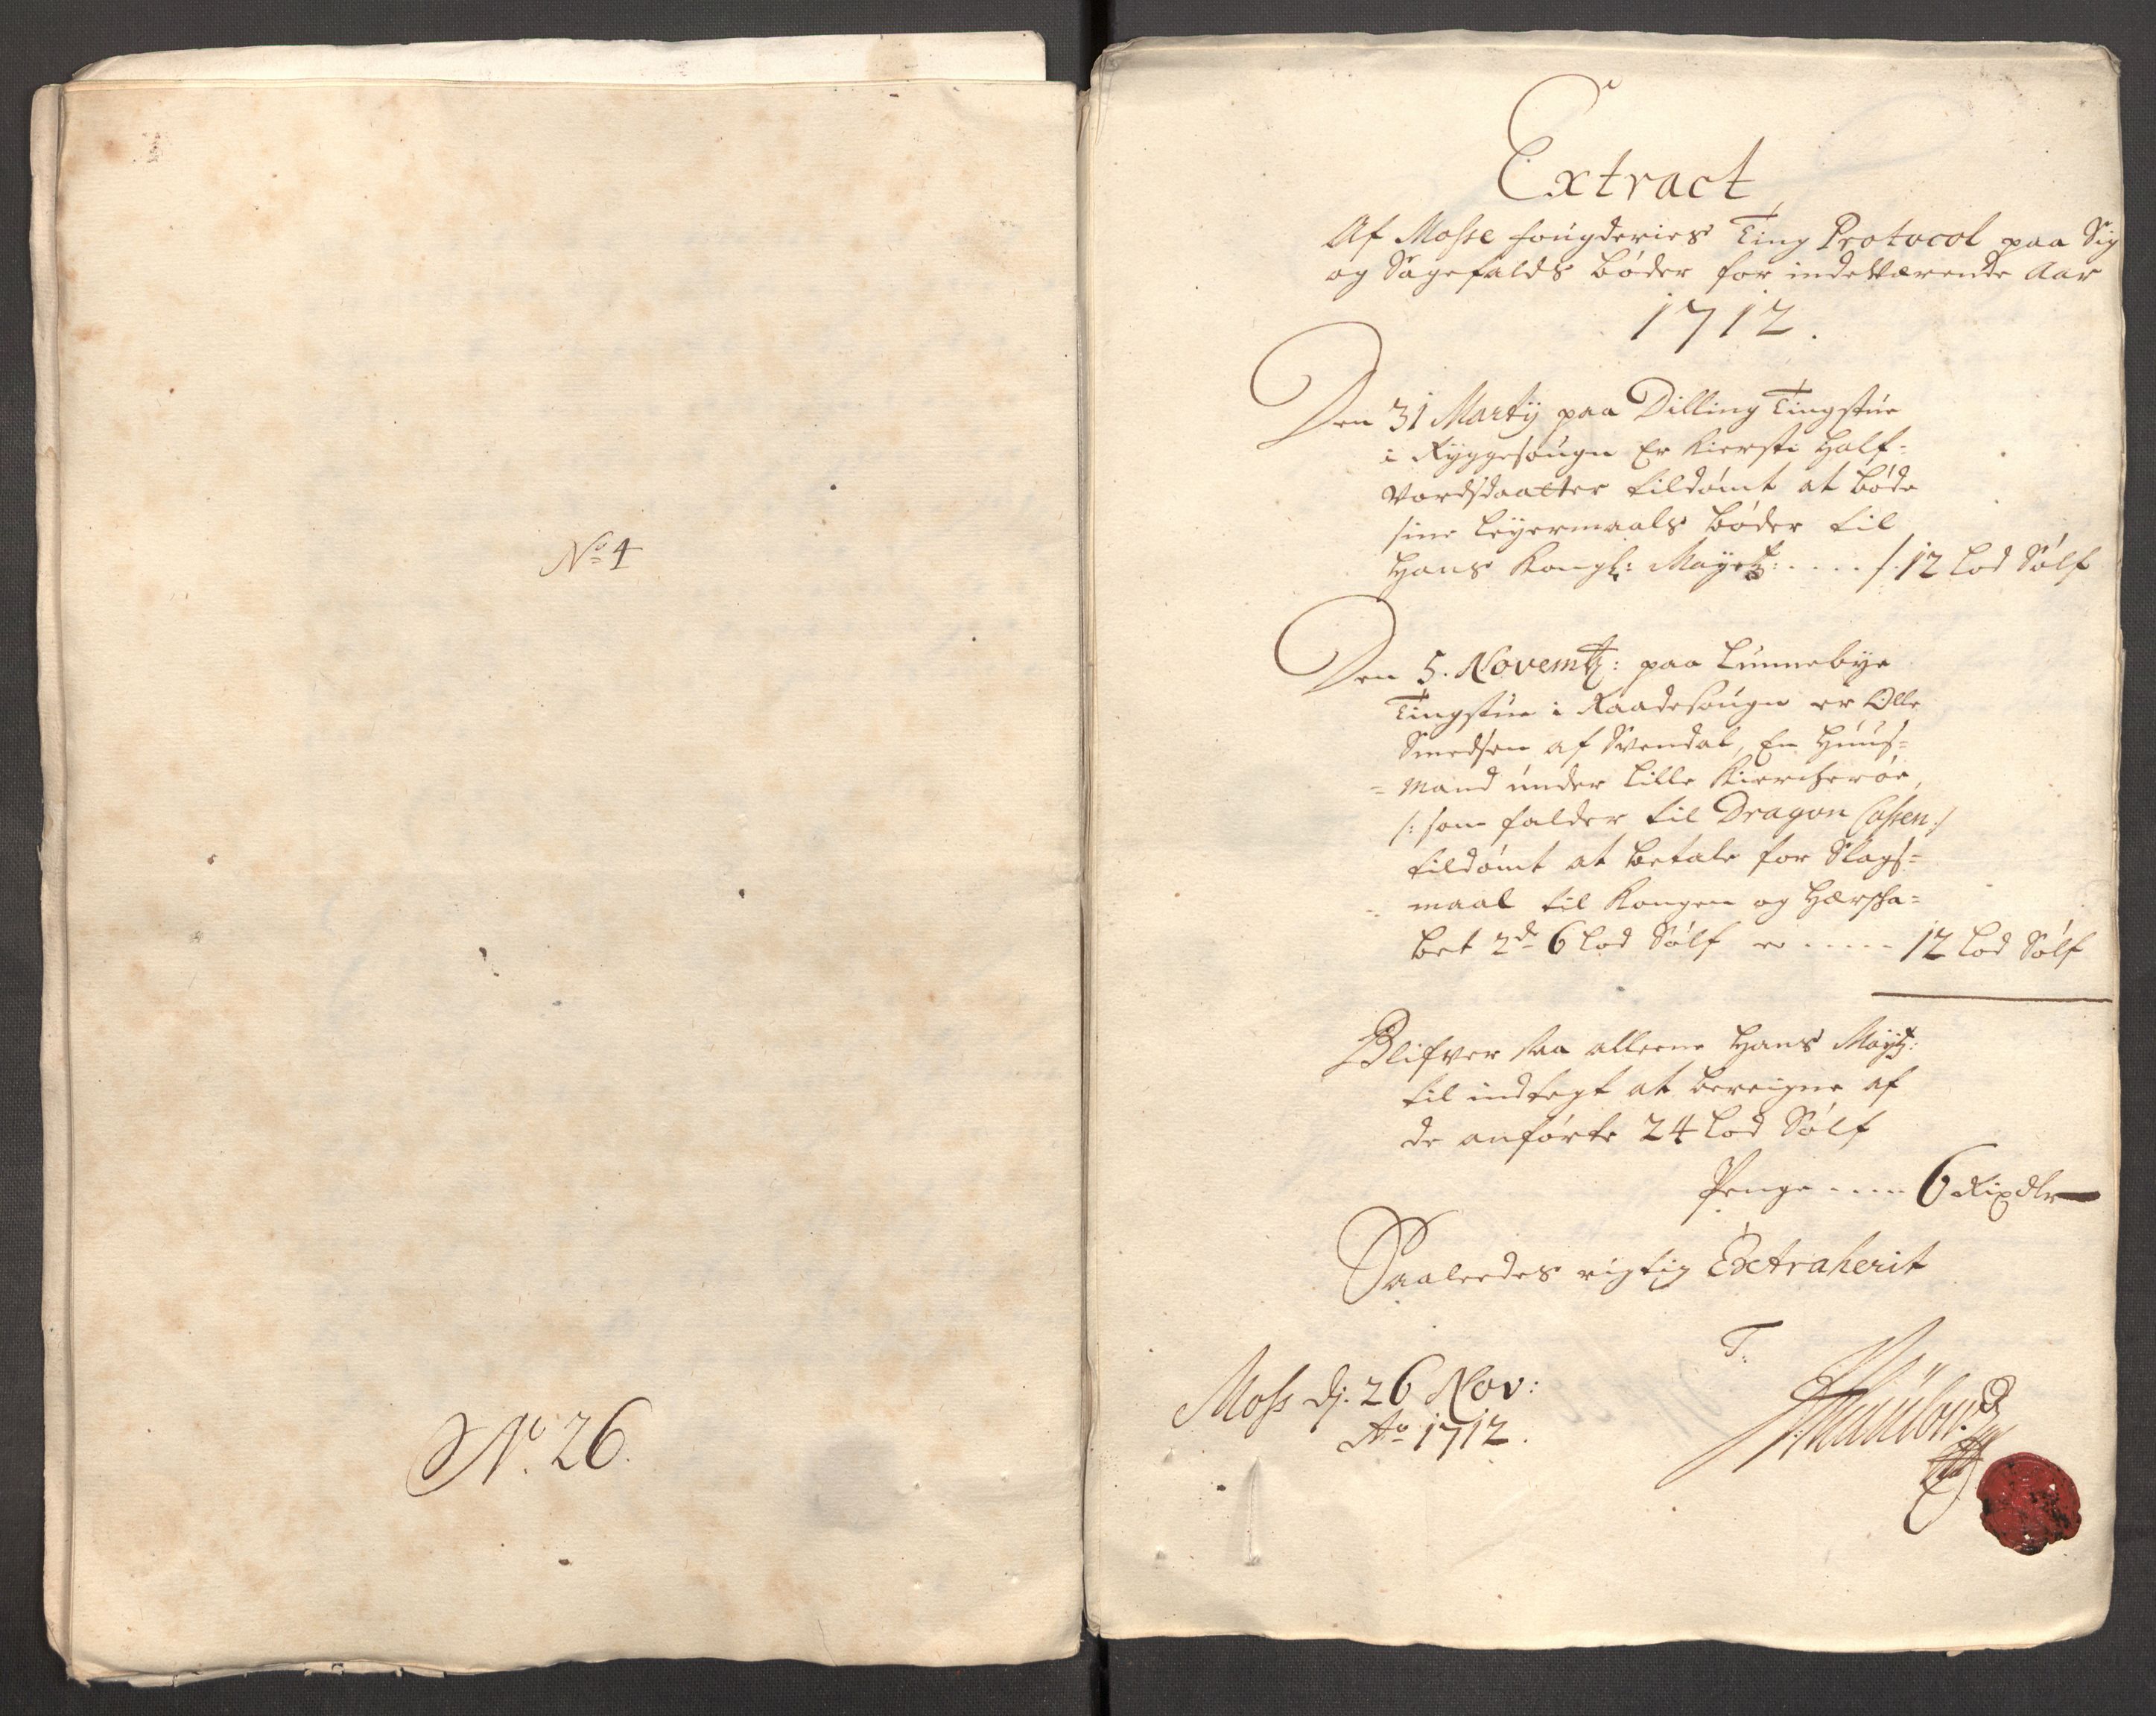 No 4
No. 26.
Extract
Af Mosse fougderies Ting Protocol paa Sig
og Sagefalds bøder for indeværende Aar
1712.
Den 31 Martij paa Dilling Tingstue
i Ryggesougn Er Kiersti Half-
vordsdaatter tildømt at bøde
sine leyermaals bøder til
Hans Kongl: Mayetz: .... /. 12 lod Sølf
Den 5. Novembr: paa Lunnebye
Tingstue i Raadesougn er Olle
Smedsen af Svendal, En Huus-
= mand under lille Kiercherøe,
/: som falder til Dragon Cassen :/
tildømt at betale for Slags-
= maal til Kongen og Herska-
bet 2de 6 lod Sølf er ..... 12 lod Sølf
Blifver saa alleene Hans Maytz:
til indtegt at bereigne af
de anførte 24 lod Sølf
Penge .... 6 Rixdlr
Saaleedes rigtig Extraherit
T:
Moss dj. 26 Nov:
Ao 1712.